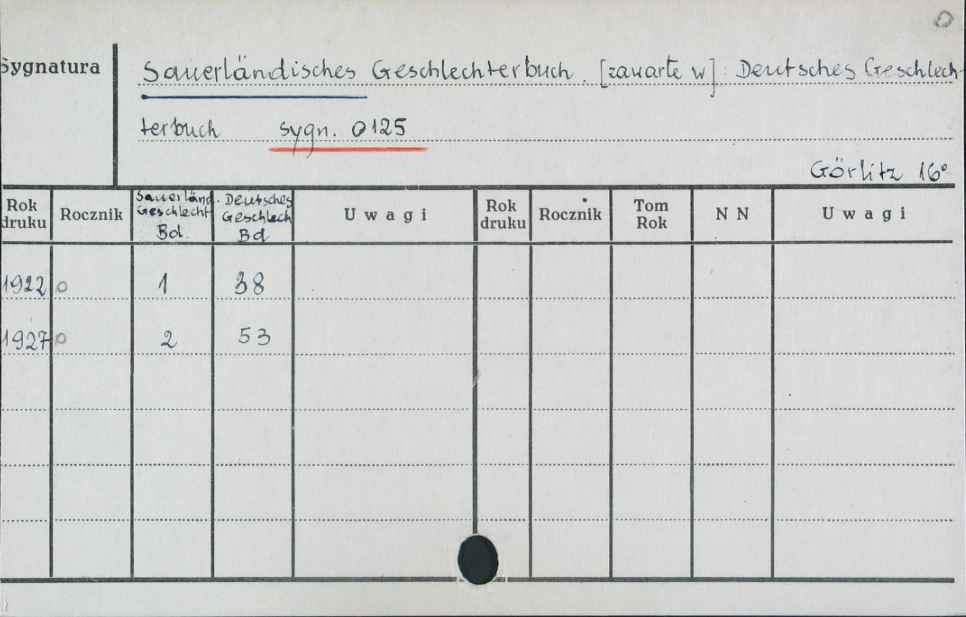 Sygnatura
Sauerländisches Geschlechterbuch. [zawarte w]: Deutsches Geschlech-
terbuch sygn. O125
Görlitz 16°
Rok druku Rocznik Sauerländ. Geschlecht Bd. Deutsches Geschlech Bd Uwagi Rok druku Rocznik Tom Rok NN Uwagi
1922 o 1 38
1927 o 2 53